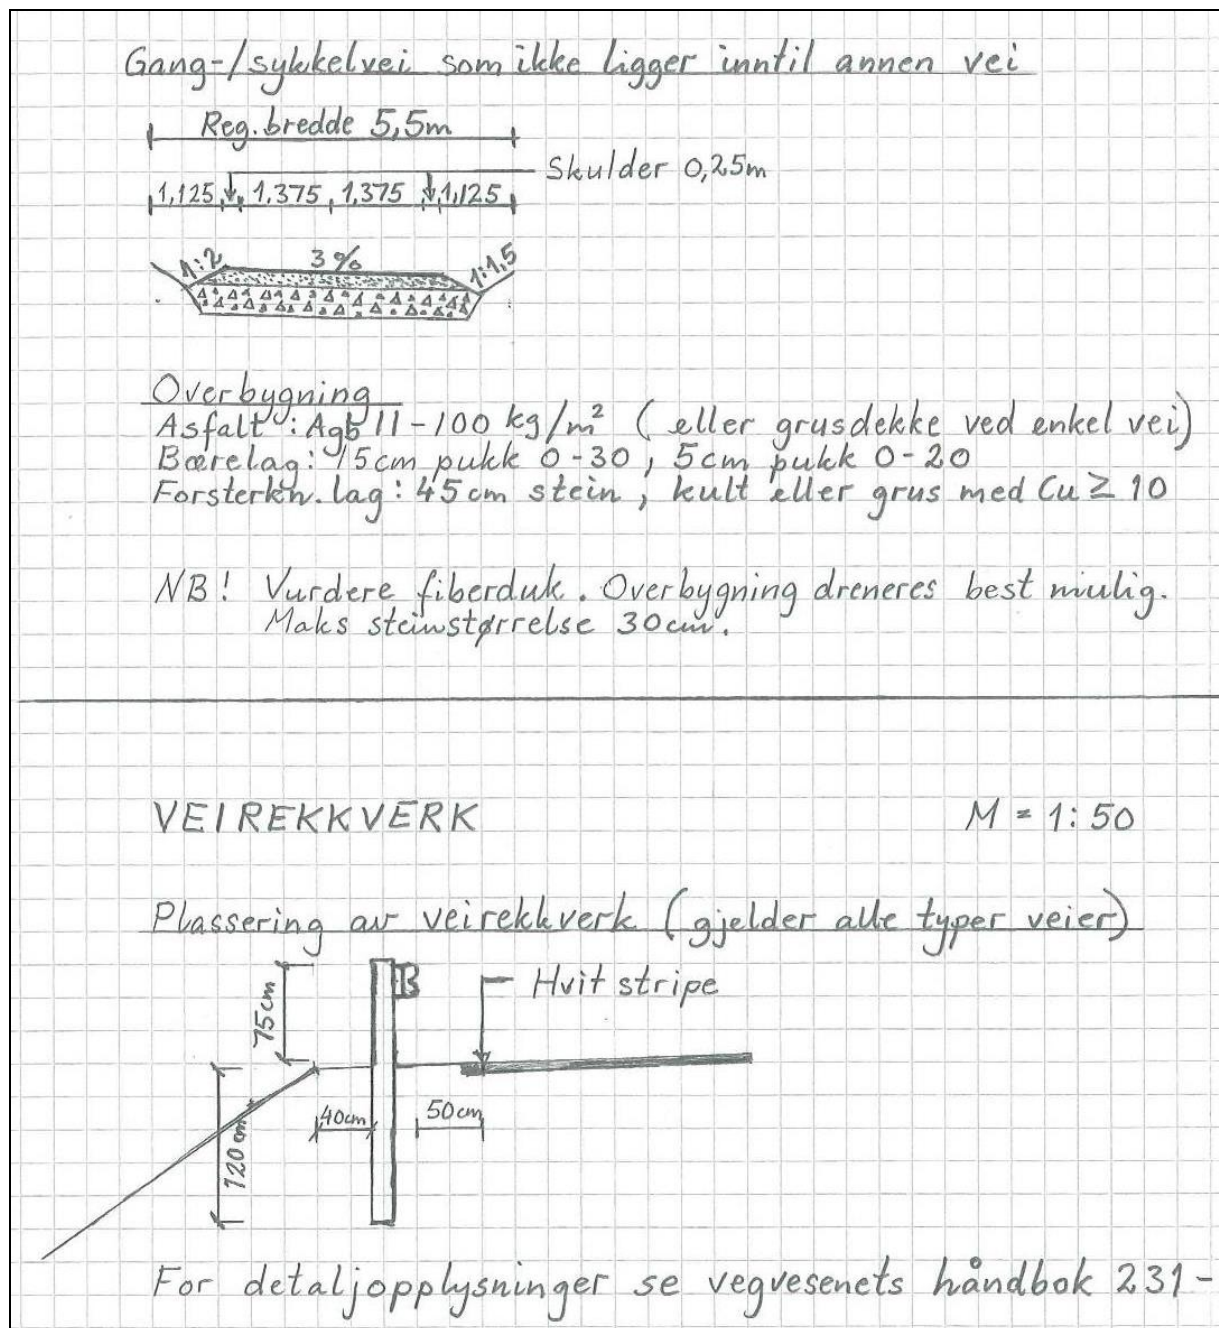 Gang-/sykkelvei som ikke ligger inntil annen vei
Reg. bredde 5,5m
Skulder 0,25m
1,125 1.375 1,375 1,125
1:2 3% 1:1,5
Overbygning
Asfalt : Agb 11-100 kg/m² (eller grusdekke ved enkel vei)
Bærelag: 15cm pukk 0-30, 5cm pukk 0-20
Forsterkn. lag: 45cm stein, kult eller grus med Cu ≥ 10
NB! Vurdere fiberduk. Overbygning dreneres best mulig.
Maks steinstørrelse 30cm.
VEIREKKVERK M = 1:50
Plassering av veirekkverk (gjelder alle typer veier)
75cm
Hvit stripe
40cm
50cm
120cm
For detaljopplysninger se vegvesenets håndbok 231-